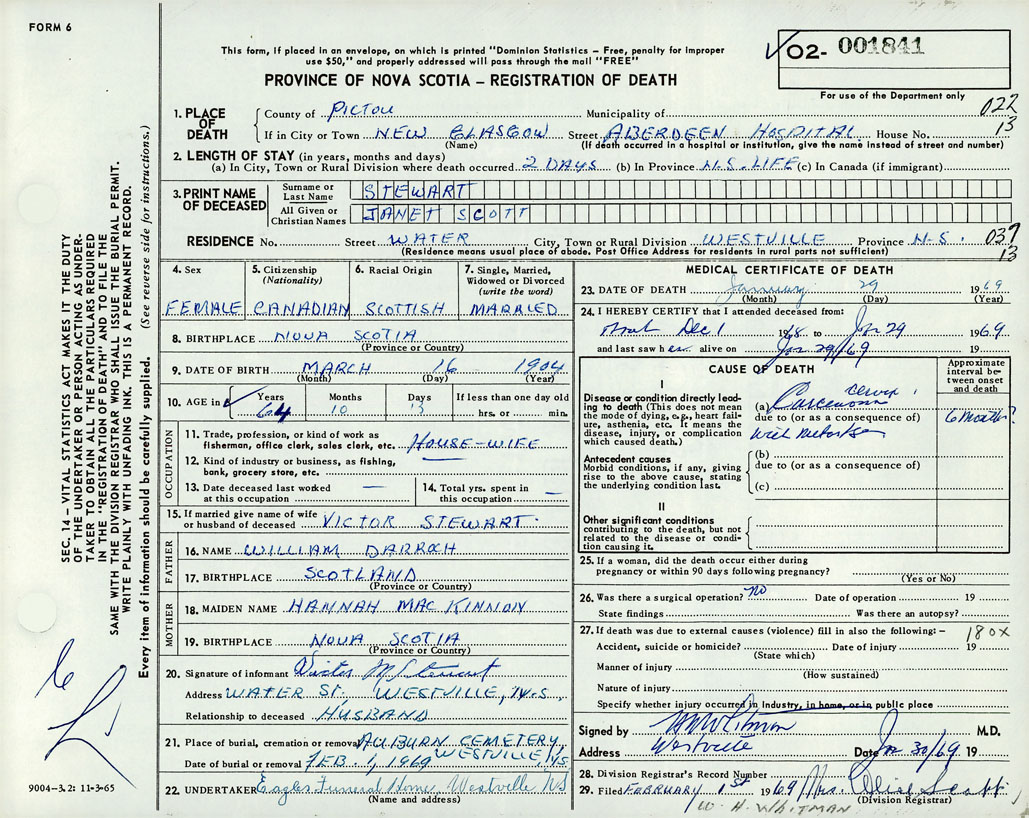 FORM 6
This form, if placed in an envelope, on which is printed "Dominion Statistics – Free, penalty for improper
use $50," and properly addressed will pass through the mail "FREE"
PROVINCE OF NOVA SCOTIA – REGISTRATION OF DEATH
✓ 02- 001841
For use of the Department only
022
13
1. PLACE OF DEATH
County of PICTOU Municipality of
If in City or Town NEW GLASGOW Street ABERDEEN HOSPITAL House No.
(Name) (If death occurred in a hospital or institution, give the name instead of street and number)
2. LENGTH OF STAY (in years, months and days)
(a) In City, Town or Rural Division where death occurred 2 DAYS (b) In Province N.S. LIFE (c) In Canada (if immigrant)
3. PRINT NAME OF DECEASED
Surname or Last Name STEWART
All Given or Christian Names JANET SCOTT
RESIDENCE No. Street WATER City, Town or Rural Division WESTVILLE Province N.S. 037
(Residence means usual place of abode. Post Office Address for residents in rural parts not sufficient) 13
4. Sex FEMALE
5. Citizenship (Nationality) CANADIAN
6. Racial Origin SCOTTISH
7. Single, Married, Widowed or Divorced (write the word) MARRIED
8. BIRTHPLACE NOVA SCOTIA
(Province or Country)
9. DATE OF BIRTH MARCH 16 1904
(Month) (Day) (Year)
10. AGE in ✓ Years 64 Months 10 Days 13 If less than one day old hrs. or min.
OCCUPATION
11. Trade, profession, or kind of work as fisherman, office clerk, sales clerk, etc. HOUSE-WIFE
12. Kind of industry or business, as fishing, bank, grocery store, etc. —
13. Date deceased last worked at this occupation —
14. Total yrs. spent in this occupation —
15. If married give name of wife or husband of deceased VICTOR STEWART.
FATHER
16. NAME WILLIAM DARROCH
17. BIRTHPLACE SCOTLAND
(Province or Country)
MOTHER
18. MAIDEN NAME HANNAH MAC KINNON
19. BIRTHPLACE NOVA SCOTIA
(Province or Country)
20. Signature of informant Victor M Stewart
Address WATER ST. WESTVILLE, N.S.
Relationship to deceased HUSBAND
21. Place of burial, cremation or removal AUBURN CEMETERY, WESTVILLE, N.S.
Date of burial or removal FEB. 1, 1969
22. UNDERTAKER Eagles Funeral Home, Westville NS
(Name and address)
MEDICAL CERTIFICATE OF DEATH
23. DATE OF DEATH January 29 1969
(Month) (Day) (Year)
24. I HEREBY CERTIFY that I attended deceased from:
about Dec 1 1968 to Jan 29 1969
and last saw her alive on Jan 29/69 19
CAUSE OF DEATH
Approximate interval between onset and death
I
Disease or condition directly leading to death (This does not mean the mode of dying, e.g., heart failure, asthenia, etc. It means the disease, injury, or complication which caused death.)
(a) Carcinoma cervix
due to (or as a consequence of) 6 months?
with
Antecedent causes
Morbid conditions, if any, giving rise to the above cause, stating the underlying condition last.
(b)
due to (or as a consequence of)
(c)
II
Other significant conditions
contributing to the death, but not related to the disease or condition causing it.
25. If a woman, did the death occur either during pregnancy or within 90 days following pregnancy?
(Yes or No)
26. Was there a surgical operation? no Date of operation 19
State findings Was there an autopsy?
27. If death was due to external causes (violence) fill in also the following: – 180X
Accident, suicide or homicide? Date of injury 19
(State which)
Manner of injury
(How sustained)
Nature of injury
Specify whether injury occurred in Industry, in home, or in public place
Signed by M.D.
Address Westville Date Jan 30/69 19
28. Division Registrar's Record Number
29. Filed FEBRUARY 1st 1969 Mrs. Scott
(Division Registrar)
W. H. WHITMAN
SEC. 14 – VITAL STATISTICS ACT MAKES IT THE DUTY
OF THE UNDERTAKER OR PERSON ACTING AS UNDER-
TAKER TO OBTAIN ALL THE PARTICULARS REQUIRED
IN THE "REGISTRATION OF DEATH" AND TO FILE THE
SAME WITH THE DIVISION REGISTRAR WHO SHALL ISSUE THE BURIAL PERMIT.
WRITE PLAINLY WITH UNFADING INK. THIS IS A PERMANENT RECORD.
Every item of information should be carefully supplied. (See reverse side for instructions.)
9004-3.2: 11-3-65